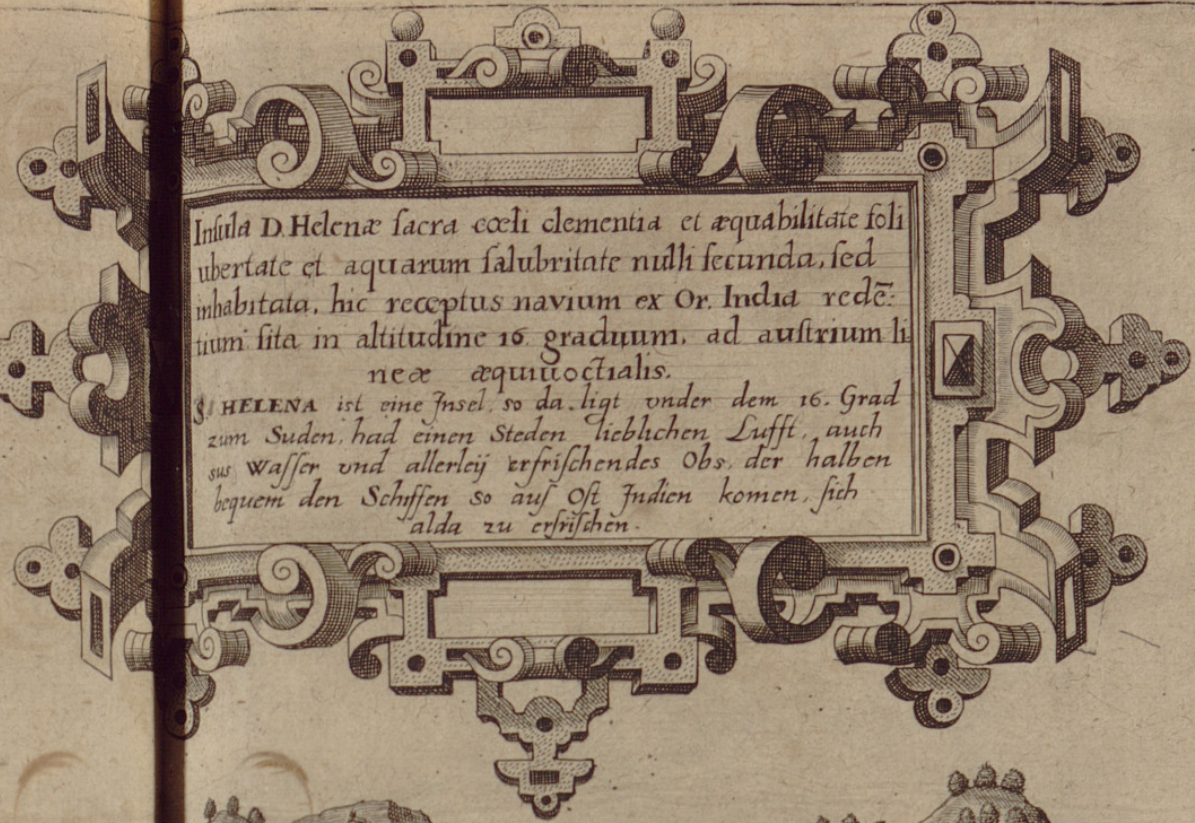 Inſula D. Helenæ ſacra cœli clementia et æquabilitate ſoli
ubertate et aquarum ſalubritate nulli ſecunda, ſed
inhabitata, hic receptus navium ex Or. India redẽ:
tium ſita in altitudine 16. graduum, ad auſtrium li
neæ æquiuoctialis.
S. HELENA iſt eine Inſel, so da ligt vnder dem 16. Grad
zum Suden, had einen Steden lieblichen Lufft, auch
sus Waſſer vnd allerleÿ erfriſchendes Obs, der halben
bequem den Schiffen so auſ Oſt Indien komen, ſich
alda zu erfriſchen.